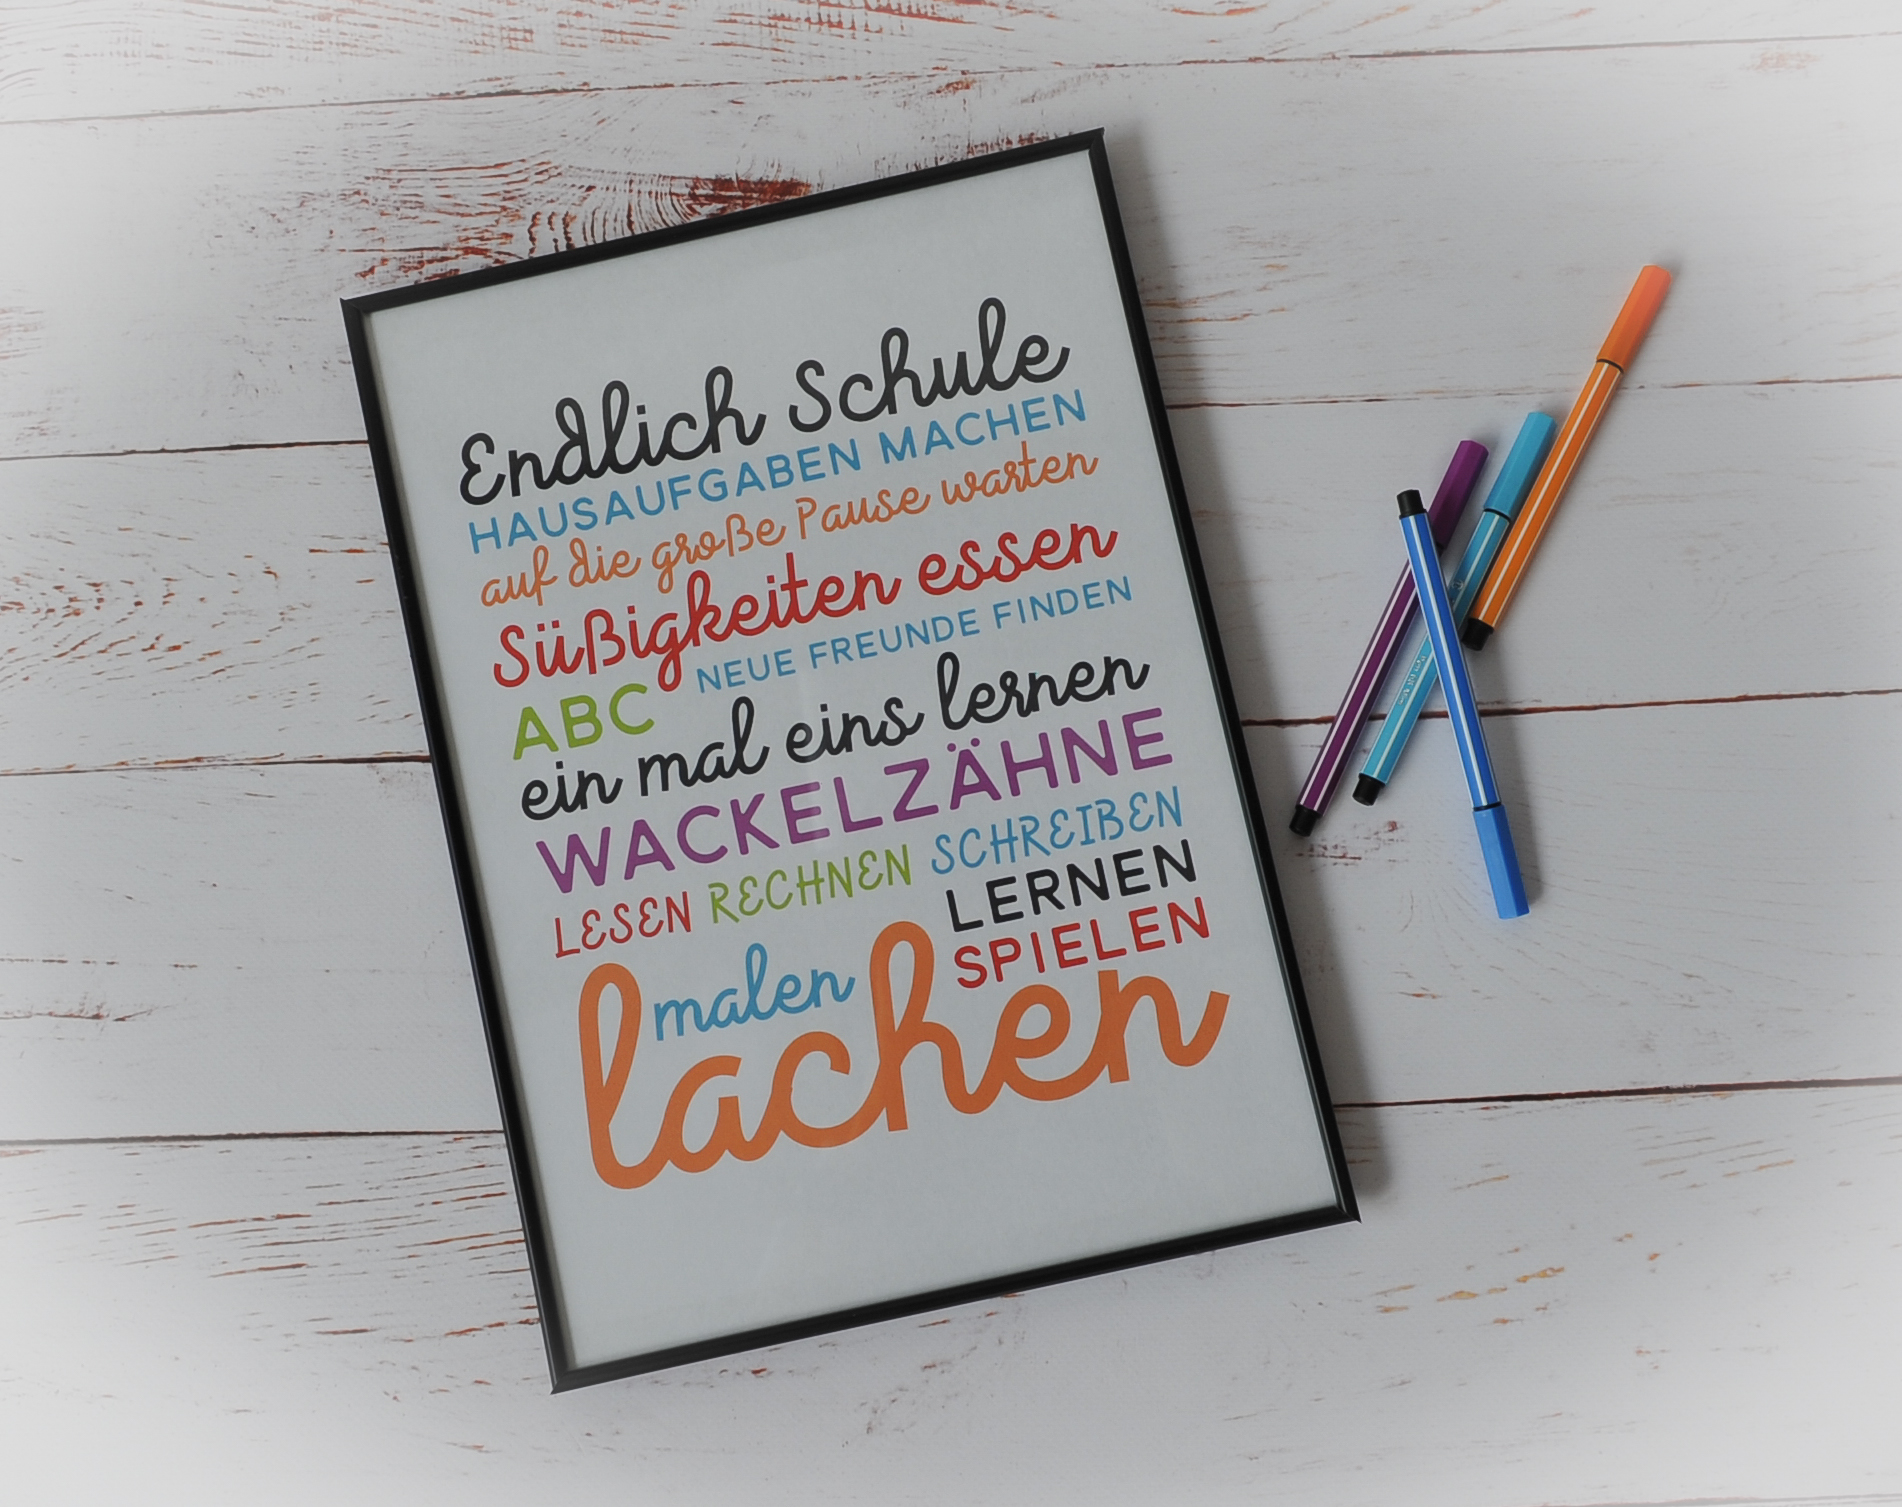 Endlich Schule
HAUSAUFGABEN MACHEN
auf die große Pause warten
Süßigkeiten essen
ABC NEUE FREUNDE FINDEN
ein mal eins lernen
WACKELZÄHNE
LESEN RECHNEN SCHREIBEN
LERNEN
malen SPIELEN
lachen